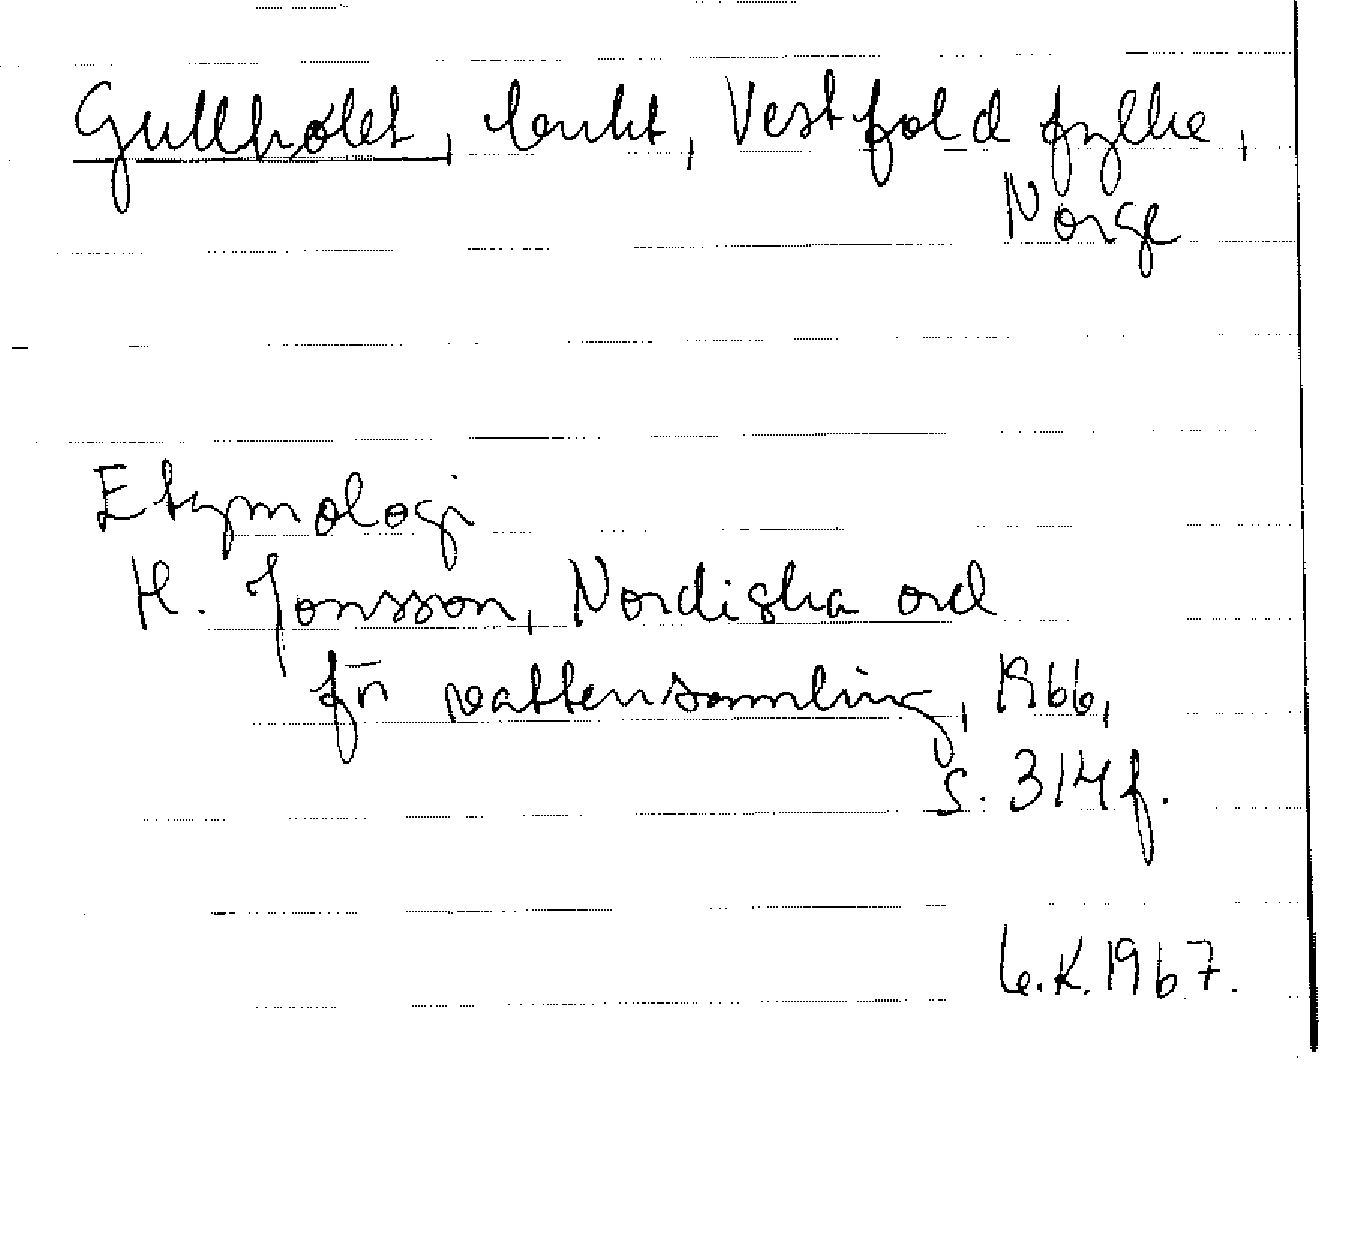 Gullhølet, tankt, Vestfold fylke,
Norge
Etymologi
H. Jonsson, Nordiska ord
för vattensamling, 1966,
s. 314f.
L.K. 1967.